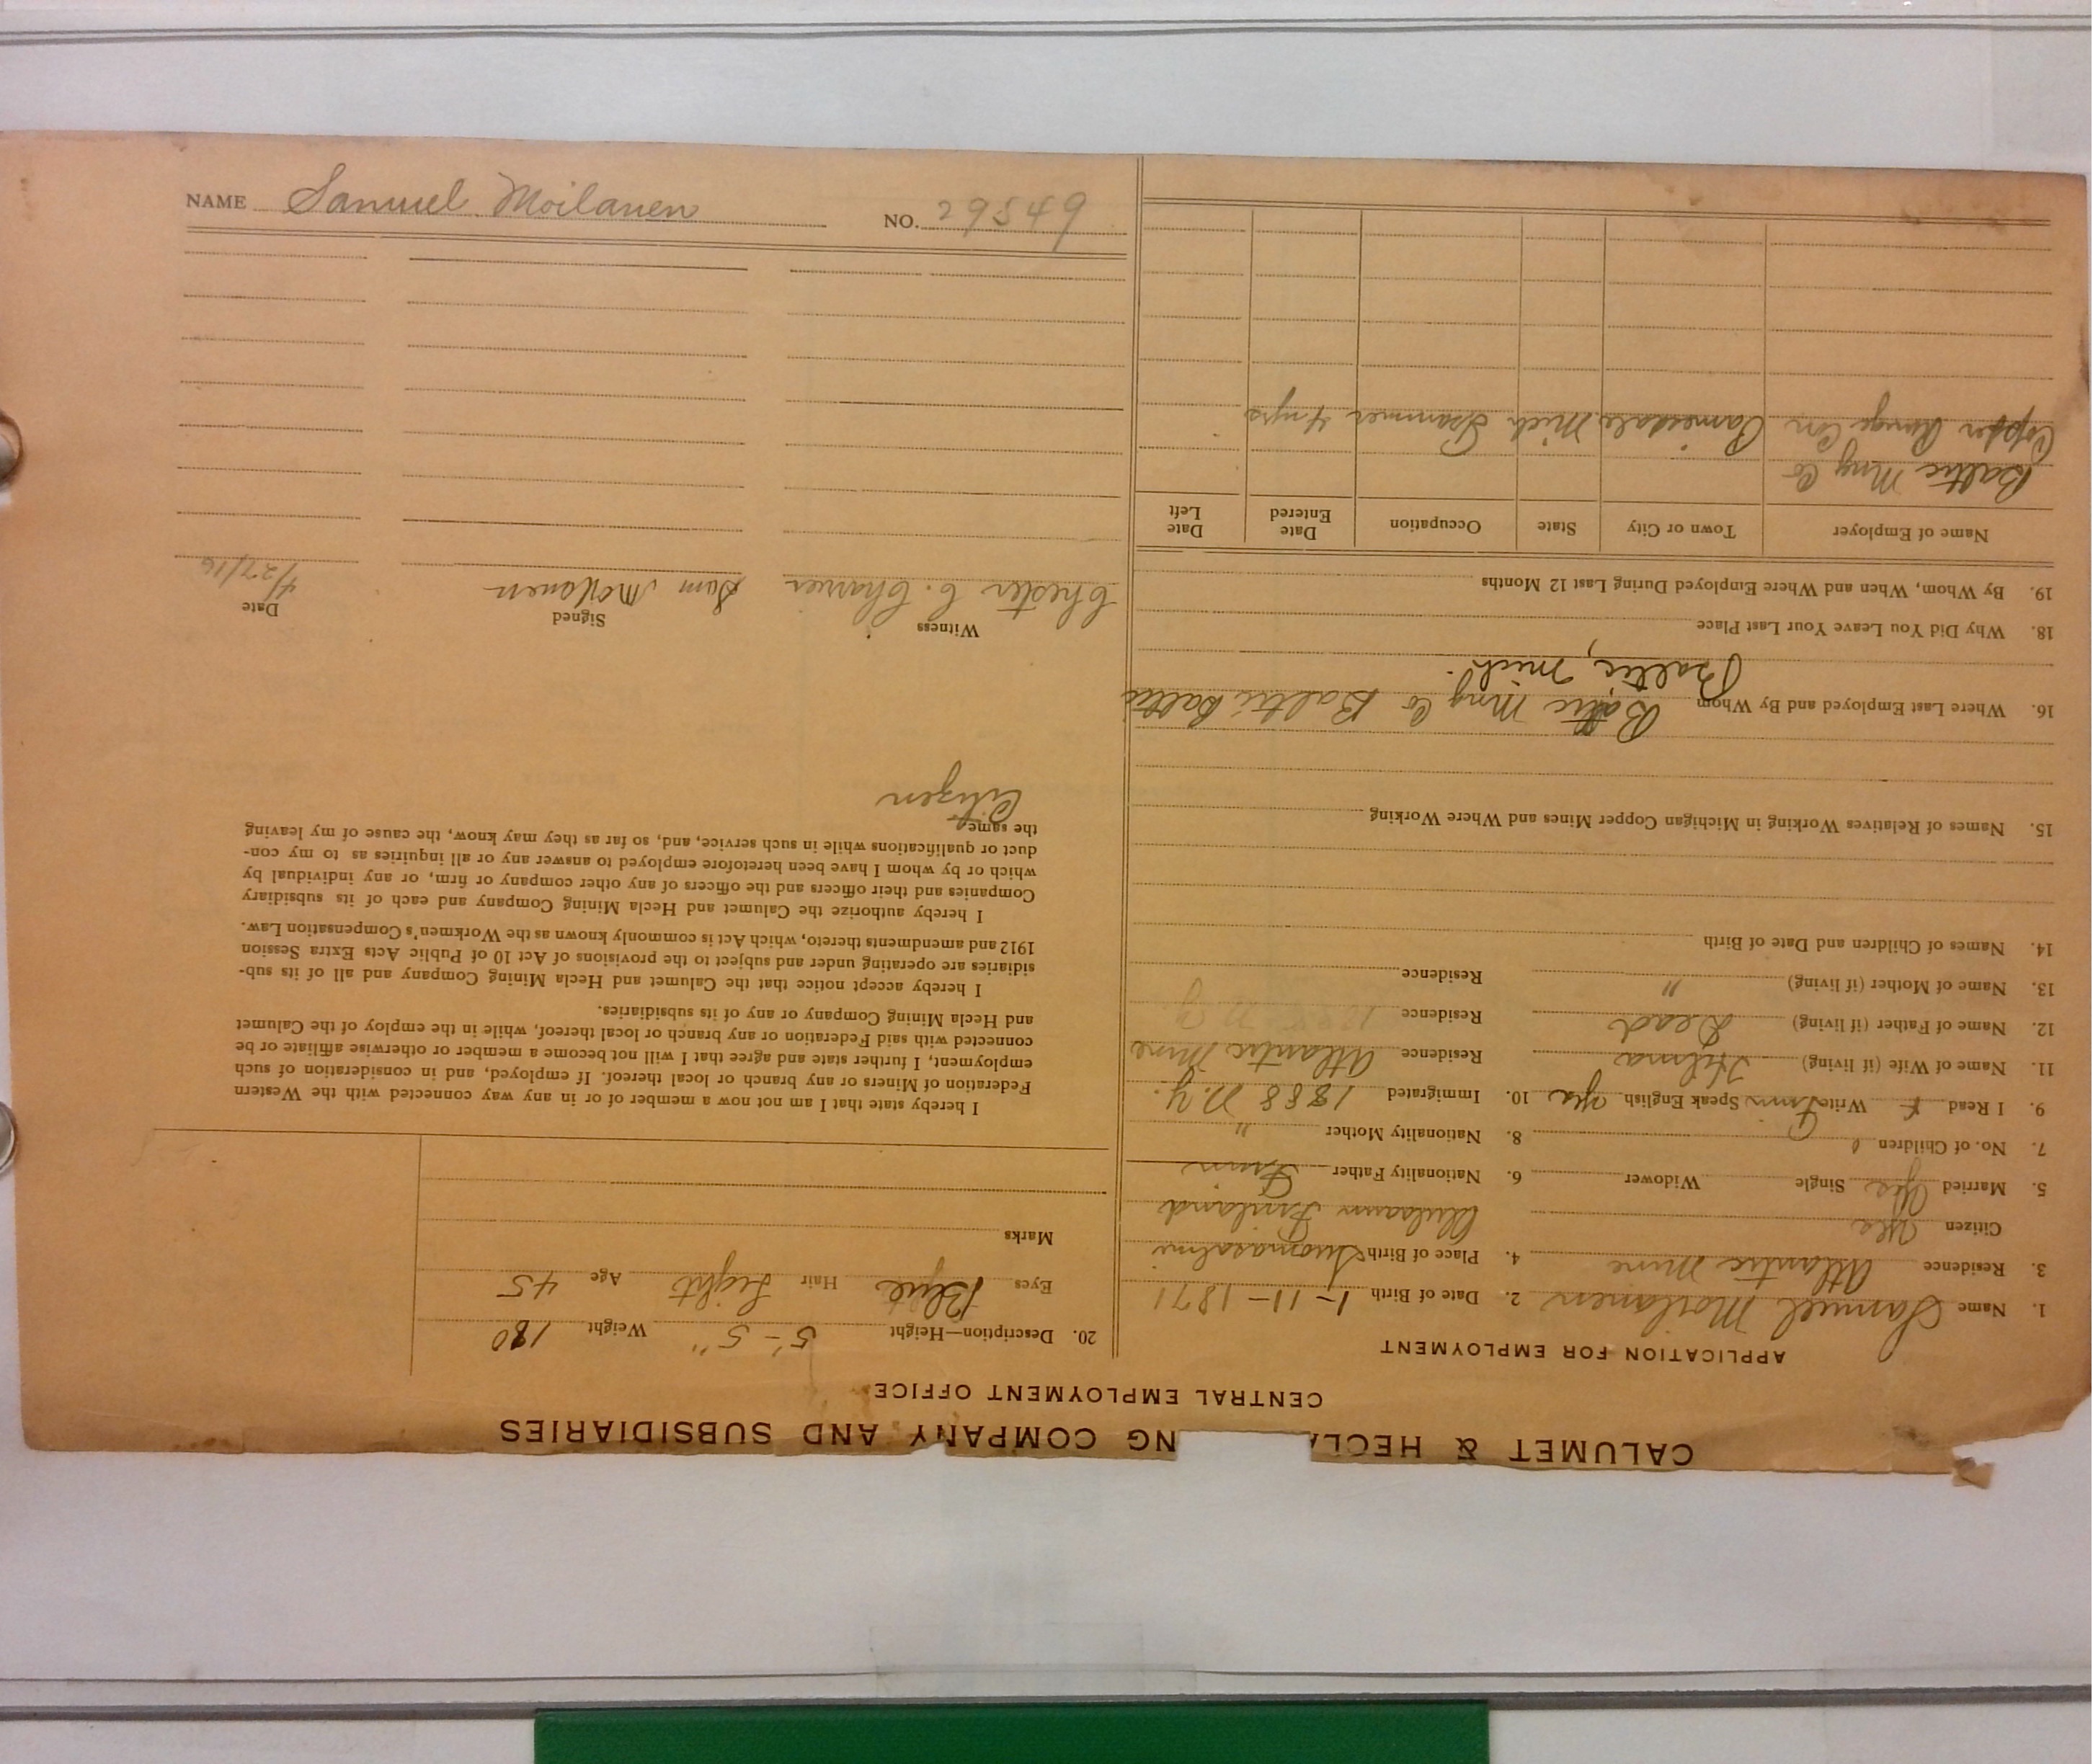 NAME Samuel Moilanen NO. 29549
CALUMET & HECLA NG COMPANY AND SUBSIDIARIES
CENTRAL EMPLOYMENT OFFICE
APPLICATION FOR EMPLOYMENT
1. Name Samuel Moilanen 2. Date of Birth 1-11-1871
3. Residence Atlantic Mine 4. Place of Birth Suomasalmi
Citizen Yes Finland
5. Married Yes Single Widower 6. Nationality Father Finn
7. No. of Children 8. Nationality Mother "
9. I Read F Write Finn Speak English Yes 10. Immigrated 1888 N.Y.
11. Name of Wife (if living) Hilma Residence Atlantic Mine
12. Name of Father (if living) Dead Residence
13. Name of Mother (if living) " Residence
14. Names of Children and Date of Birth
15. Names of Relatives Working in Michigan Copper Mines and Where Working
16. Where Last Employed and By Whom Baltic Mng Co Baltic Baltic
Baltic, Mich.
18. Why Did You Leave Your Last Place
19. By Whom, When and Where Employed During Last 12 Months
Name of Employer Town or City State Occupation Date Entered Date Left
Baltic Mng Co
Copper Range Con Painesdale Mich Trammer 4 yrs
20. Description—Height 5'-5" Weight 180
Eyes Blue Hair Light Age 45
Marks
I hereby state that I am not now a member of or in any way connected with the Western
Federation of Miners or any branch or local thereof. If employed, and in consideration of such
employment, I further state and agree that I will not become a member or otherwise affiliate or be
connected with said Federation or any branch or local thereof, while in the employ of the Calumet
and Hecla Mining Company or any of its subsidiaries.
I hereby accept notice that the Calumet and Hecla Mining Company and all of its sub-
sidiaries are operating under and subject to the provisions of Act 10 of Public Acts Extra Session
1912 and amendments thereto, which Act is commonly known as the Workmen's Compensation Law.
I hereby authorize the Calumet and Hecla Mining Company and each of its subsidiary
Companies and their officers and the officers of any other company or firm, or any individual by
which or by whom I have been heretofore employed to answer any or all inquiries as to my con-
duct or qualifications while in such service, and, so far as they may know, the cause of my leaving
the same.
Citizen
Witness Signed Date
Chester C. Sam Moilanen 4/27/16